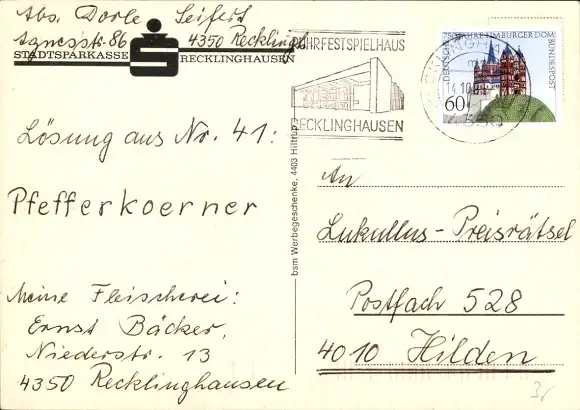 Abs. Dorle Seifert
Agnesstr. 86 4350 Recklingh.
STADTSPARKASSE RECKLINGHAUSEN
RUHRFESTSPIELHAUS
RECKLINGHAUSEN
750 JAHRE LIMBURGER DOM
DEUTSCHE BUNDESPOST
60
14.10.
4350
Lösung aus Nr. 41:
Pfefferkoerner
Meine Fleischerei:
Ernst Bäcker,
Niederstr. 13
4350 Recklinghausen
bsm Werbegeschenke, 4403 Hiltrup
An
Lukullus-Preisrätsel
Postfach 528
4010 Hilden